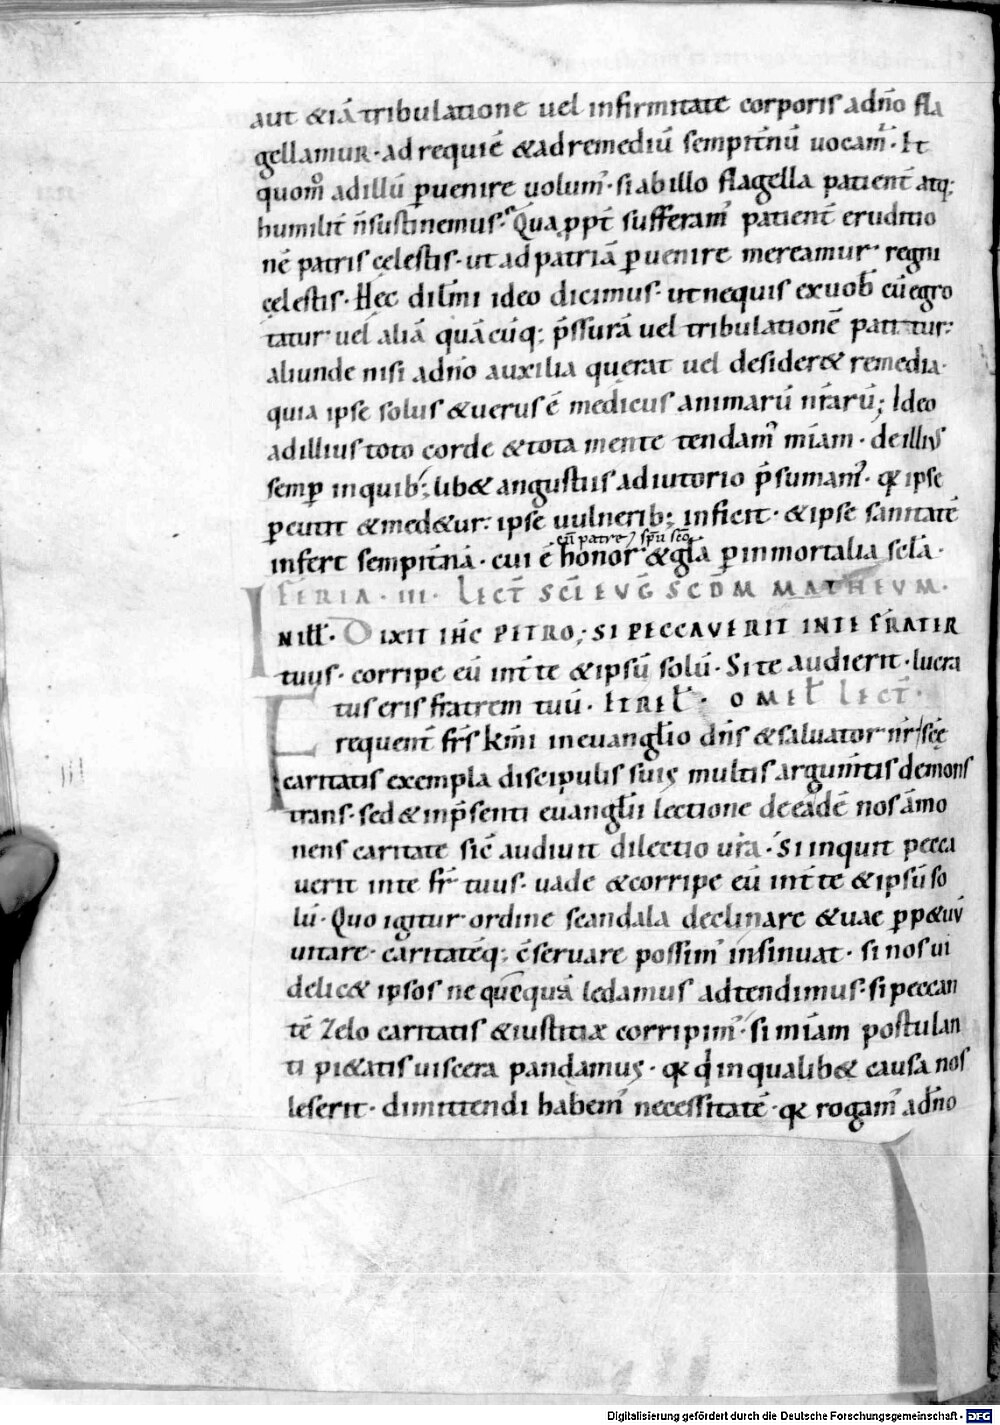 aut &iā tribulatione uel infirmitate corporis adn̄o fla
gellamur· ad requiē &ad remediū sempit̄nū uocam̄· Et
quom̊ ad illū ꝑuenire uolum᾿· si ab illo flagella patient̄ atq;
humilit̄ n̄ sustinemus·? Qua ꝓpt̄ sufferam᾿ patient̄ eruditio
nē patris cęlestis· ut ad patriā ꝑuenire mereamur regni
cęlestis· Hęc dil̄mi ideo dicimus· ut nequis ex uob̄ cū egro
tatur uel aliā quā cūq; p̄ssurā uel tribulationē patitur·
aliunde nisi adn̄o auxilia querat uel desider& remedia·
quia ipse solus &uerus ē medicus animarū nr̄arū; Ideo
ad illius toto corde &tota mente tendam᾿ mīam· de illius
semꝑ in quib; lib& angustiis adiutorio p̄sumam᾿· qꝛ ipse
ꝑcutit &med&ur· ipse uulnerib; inficit· &ipse sanitatē
infert sempit̄nā· cui ē honor &gl̄a ꝑ inmortalia scl̄a·
cū patre ⁊ sp̄u sc̄o
FERIA· III· LECT̄ SC̄I EVḠ SCD̄M MATHEVM·
IN ILL̄· DIXIT IHC PETRO; SI PECCAVERIT IN TE FRATER
tuus· corripe eū int̄ te &ipsū solū· Si te audierit· lucra
tus eris fratrem tuū· ET REL̄· OMEL̄ LECT̄·
Frequent̄ fr̄s km̄i in euangl̄io dn̄s &saluator nr̄ sc̄ę
caritatis exempla discipulis suis multis argum̄tis demons
trans· sed &in p̄senti euangl̄ii lectione de eadē nos ām̄o
nens caritate sic̄ audiuit dilectio ur̄a· Si inquit pecca
uerit in te fr̄ tuus· uade &corripe eū int̄ te &ipsū so
lū· Quo igitur ordine scandala declinare &uae ꝑp&uū
uitare· caritatēq; c̄seruare possim᾿ insinuat· si nos ui
delic& ipsos ne quēquā ledamus adtendimus· si peccan
tē zelo caritatis &iustitiæ corripim᾿· si mīam postulan
ti pi&atis uiscera pandamus· qꝛ qd̄ in qualib& causa nos
leserit· dimittendi habem᾿ necessitatē· qꝛ rogam᾿ adn̄o
III
Digitalisierung gefördert durch die Deutsche Forschungsgemeinschaft - DFG